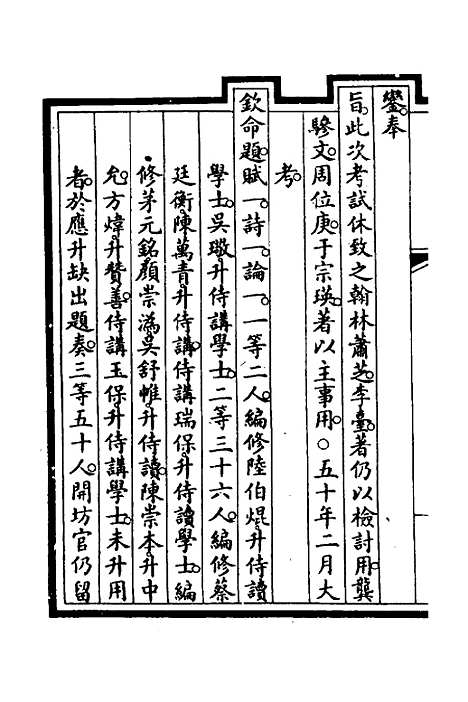 鑾奉
旨此次考試休致之翰林蕭芝李臺著仍以檢討用龔
驂文周位庚于宗瑛著以主事用○五十年二月大
考
欽命題賦一詩一論一一等二人編修陸伯焜升侍讀
學士吳璥升侍講學士二等三十六人編修蔡
廷衡陳萬青升侍講侍講瑞保升侍讀學士編
修茅元銘顏崇溈吳舒帷升侍讀陳崇本升中
允方煒升贊善侍講玉保升侍講學士未升用
者於應升缺出題奏三等五十人開坊官仍留